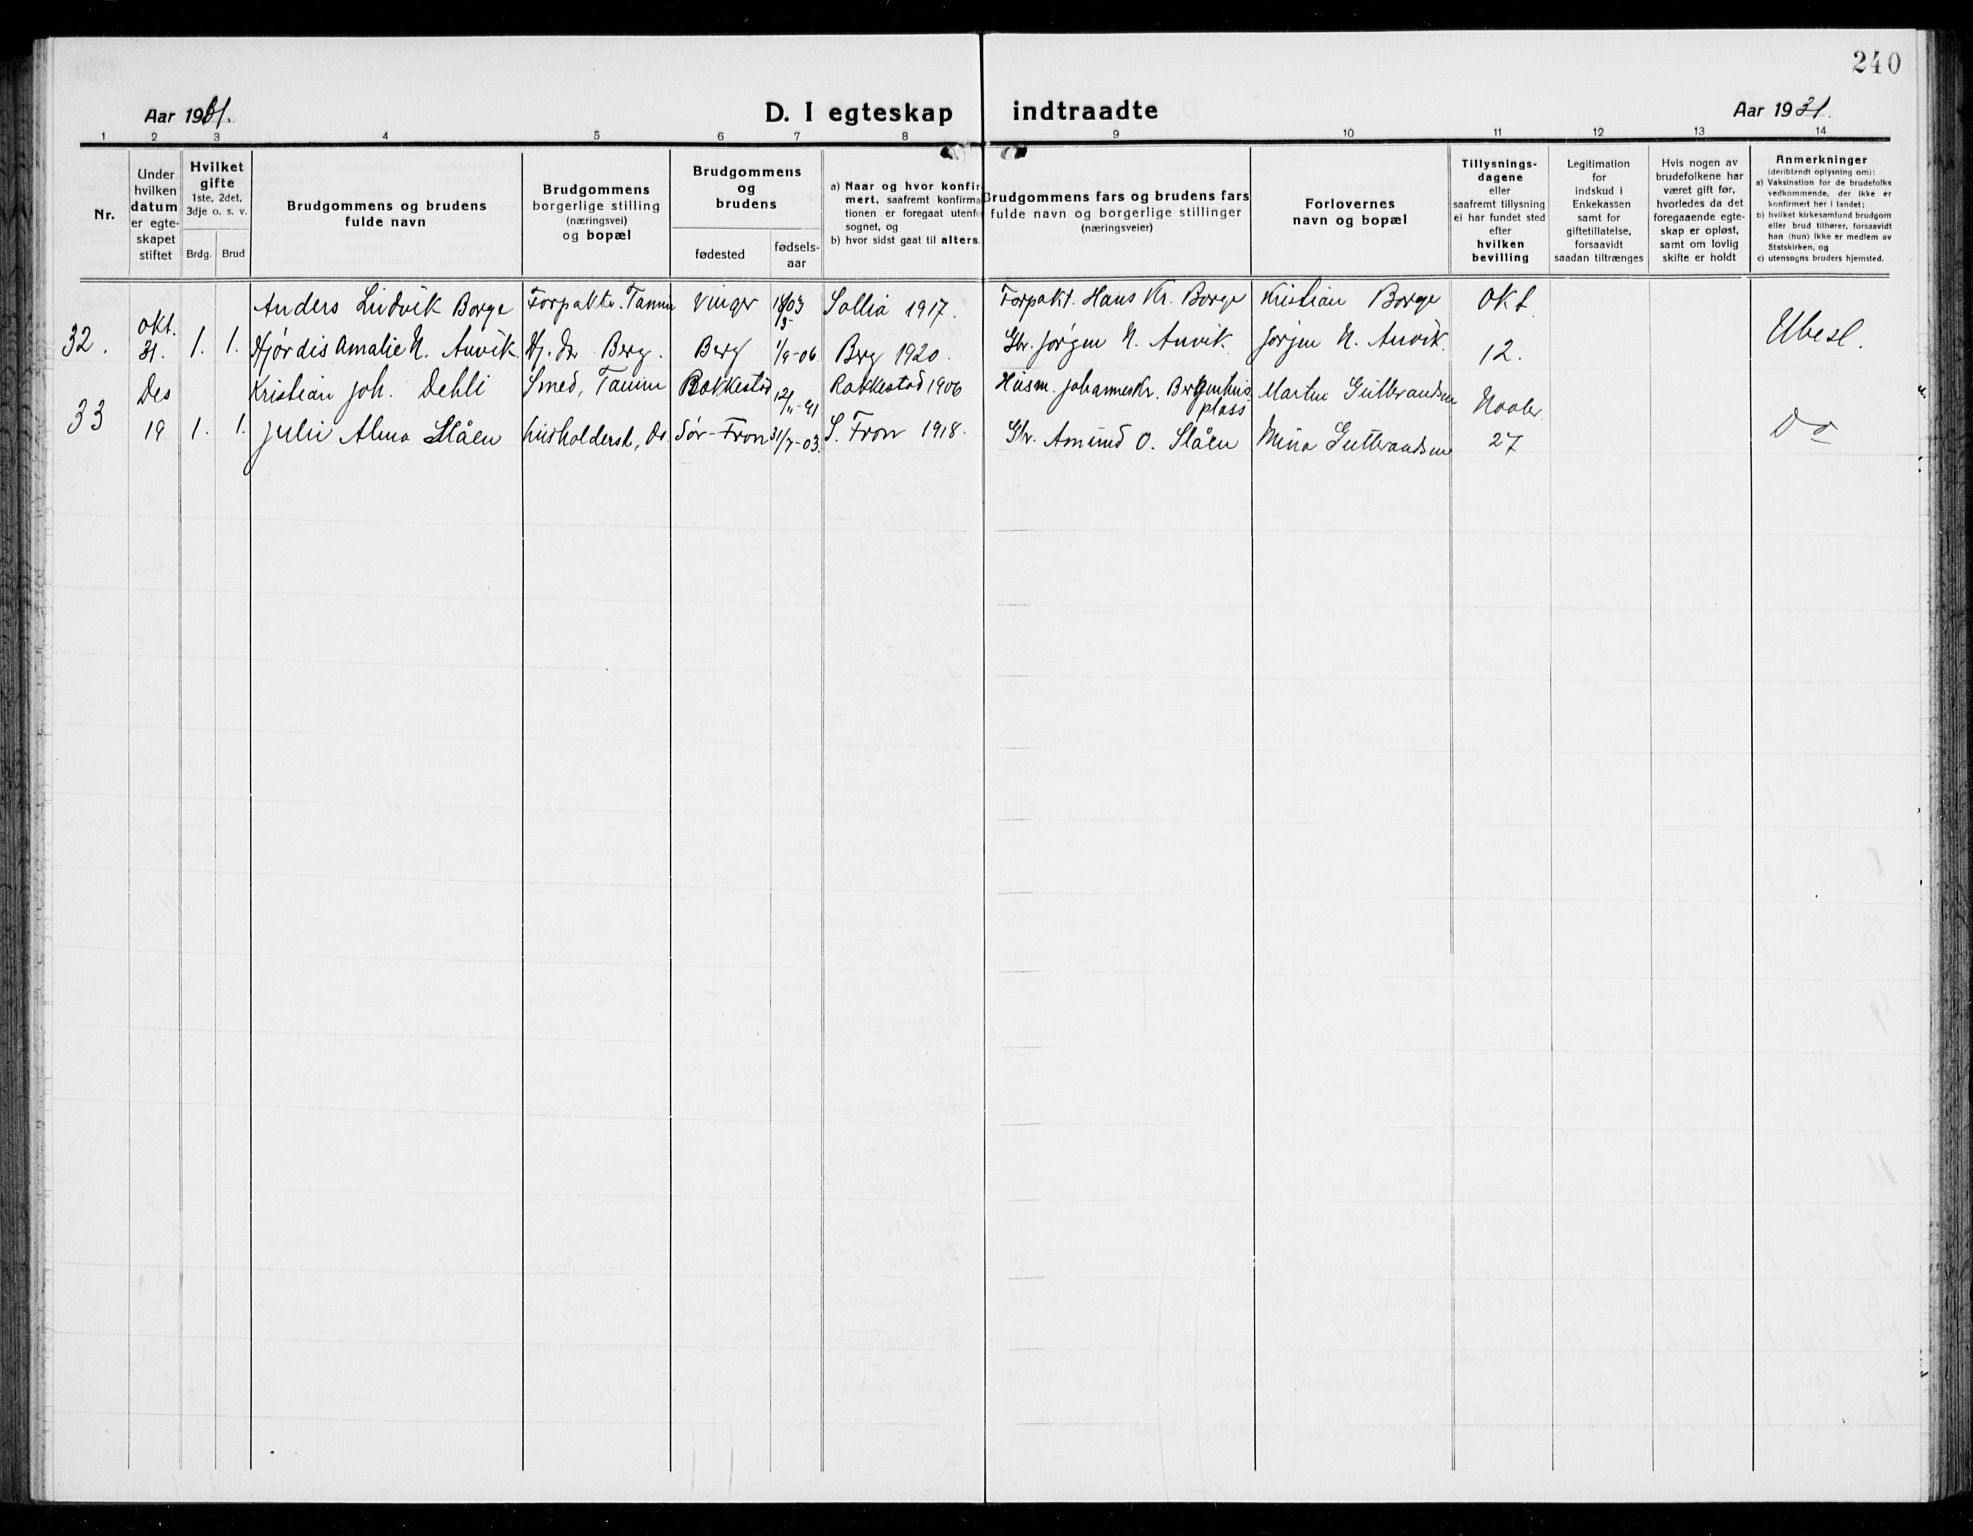 240
Aar 1931.
D. I egteskap indtraadte
Aar 1931.
1 2 3 4 5 6 7 8 9 10 11 12 13 14
Nr.
Under
hvilken
datum
er egte-
skapet
stiftet
Hvilket
gifte
1ste, 2det,
3dje o. s. v.
Brdg. Brud
Brudgommens og brudens
fulde navn
Brudgommens
borgerlige stilling
(næringsvei)
og bopæl
Brudgommens
og
brudens
fødested
fødsels-
aar
a) Naar og hvor konfir
mert, saafremt konfirma
tionen er foregaat utenfo
sognet, og
b) hvor sidst gaat til alters.
Brudgommens fars og brudens fars
fulde navn og borgerlige stillinger
(næringsveier)
Forlovernes
navn og bopæl
Tillysnings-
dagene
eller
saafremt tillysning
ei har fundet sted
efter
hvilken
bevilling
Legitimation
for
indskud i
Enkekassen
samt for
giftetillatelse,
forsaavidt
saadan tiltrænges
Hvis nogen av
brudefolkene har
været gift før,
hvorledes da det
foregaaende egte-
skap er opløst,
samt om lovlig
skifte er holdt
Anmerkninger
(deriblandt oplysning om):
a) Vaksination for de brudefolks
vedkommende, der ikke er
konfirmert her i landet;
b) hvilket kirkesamfund brudgom
eller brud tilhører, forsaavidt
han (hun) ikke er medlem av
Statskirken, og
c) utensogns bruders hjemsted.
Anders Ludvik Borge Forpakter. Tanum Vinger 18/5 03 Sollia 1917. Forpakt. Hans Kr. Borge Kristian Borge Okt.
32. Okt. 31. 1. 1. Hjørdis Amalie N. Anvik Hj. dr Berg. Berg 1/9-06 Berg 1920. Gbr. Jørgen N. Anvik. Jørgen N. Anvik. 12. Ubesl.
Des Kristian Joh. Dehli Smed, Tanum Rakkestad 12/11-91 Rakkestad 1906 Husm. Johannes Kr. Bergenhus- Martin Gulbrandsen Novbr.
plass
33 19 1. 1. Julie Alma Slåen husholdersk, Do. Sør-Fron 31/7-03. S. Fron 1918. Gbr. Amund O. Slåen Mina Gulbrandsen 27 Do